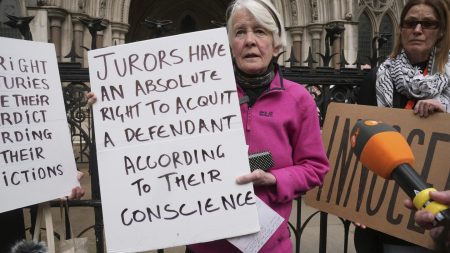 RIGHT
URIES
E THEIR
RDICT
RDING
THEIR
ICTIONS
JURORS HAVE
AN ABSOLUTE
RIGHT TO ACQUIT
A DEFENDANT
ACCORDING
TO THEIR
CONSCIENCE
INNOCE